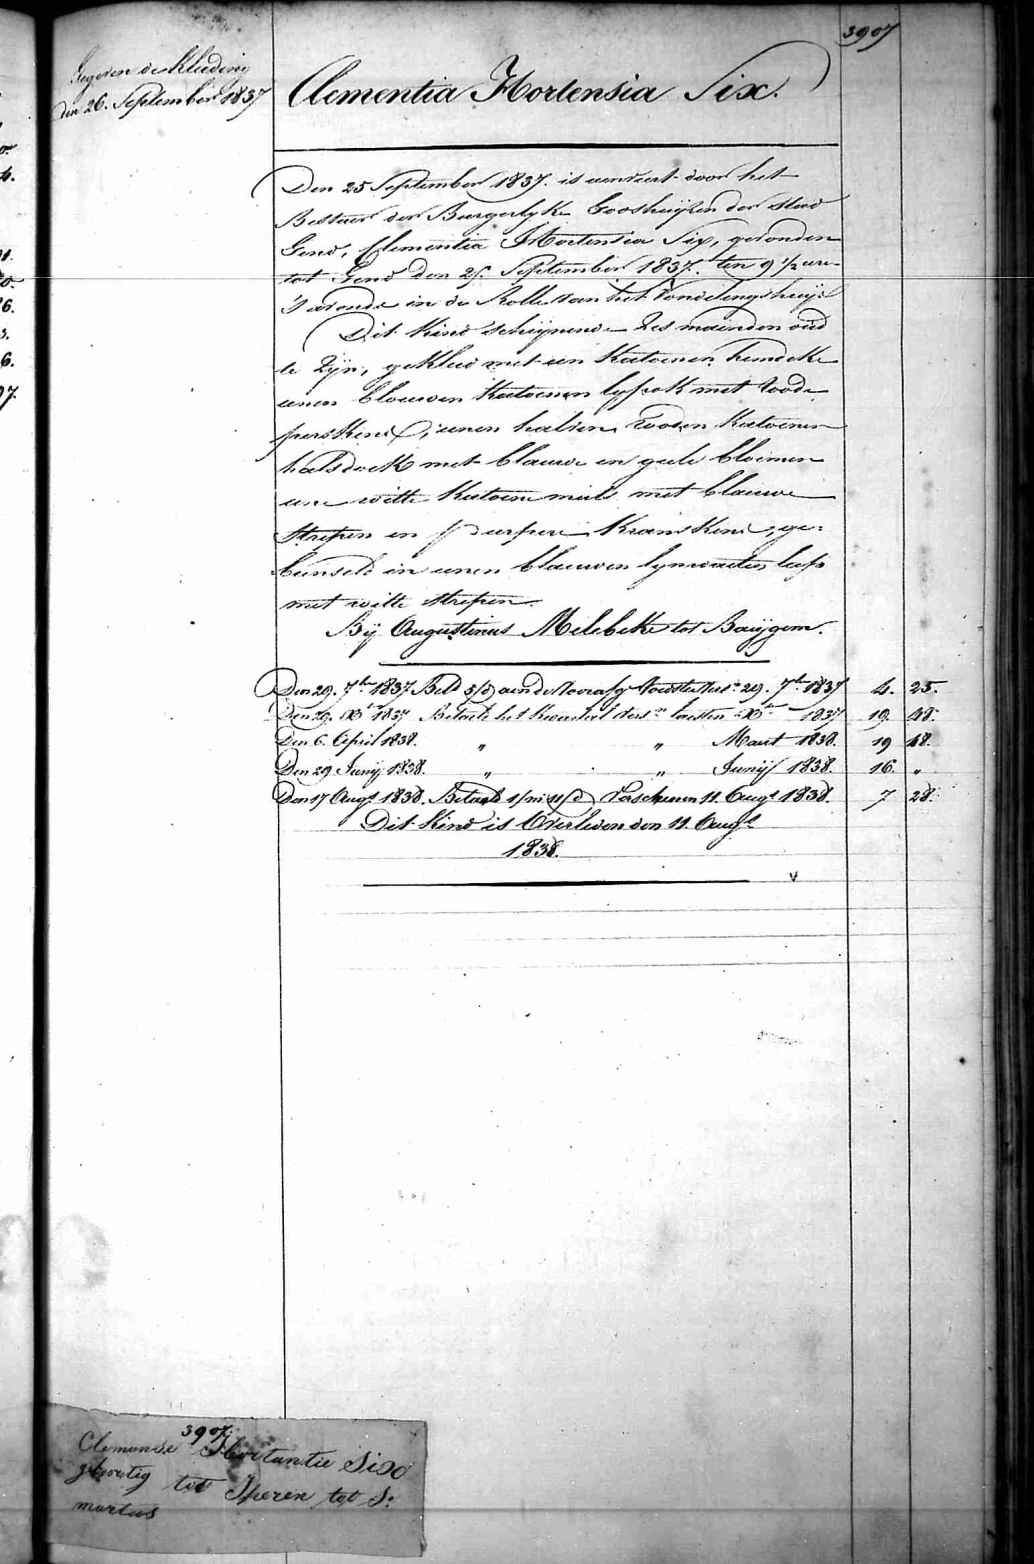 3907
Gegeven de Kleeding
den 26. September 1837
Clementia Hortensia Six.
Den 25 September 1837. is aenveert door het
Bestuer der Burgerlyke Godshuijzen der Stad
Gend, Clementia Hortensia Six, gevonden
tot Gend den 25. September 1837. ten 9 1/2 ure
's avonds in de Rolle van het Vondelingshuijs
Dit Kind schijnende zes maenden oud
te Zijn, gekleed met een Katoenen hemdeke
eenen blauwen Katoenen lyfrok met roode
perskens, eenen halven rooden Katoenen
halsdoek met blauwe en geele bloemen
een witte Katoene muts met blauwe
strepen en purpere Kranskens, ge-
bunseld in eenen blauwen lynwaeten lap
met witte strepen.
Bij Augustinus Melebeke tot Baijgem.
Den 29. 7ber 1837 Beld 5/d aen de voorafg Voedster 29. 7ber 1837 4. 25.
Den 29. Xber 1837 Betaeld het Kwartael Verst laesten Xber 1837 19. 48.
Den 6. April 1838. " " Maert 1838. 19 48.
Den 29 Junij 1838. " " Junij 1838. 16 "
Den 17 Augt 1838. Betaeld 1/m 11/d Verschenen 11 Augt 1838. 7 28.
Dit Kind is Overleden den 11. Augt
1838.
3907
Clemence Hortantie Six
geboortig tot Iperen tot St
martens